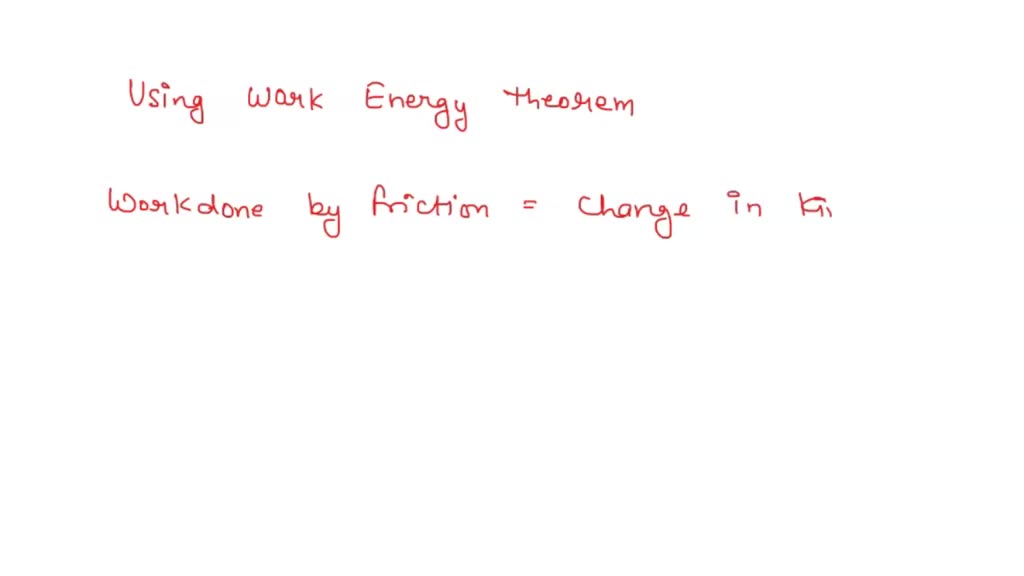 Using Work Energy theorem
Workdone by friction = Change in Ki